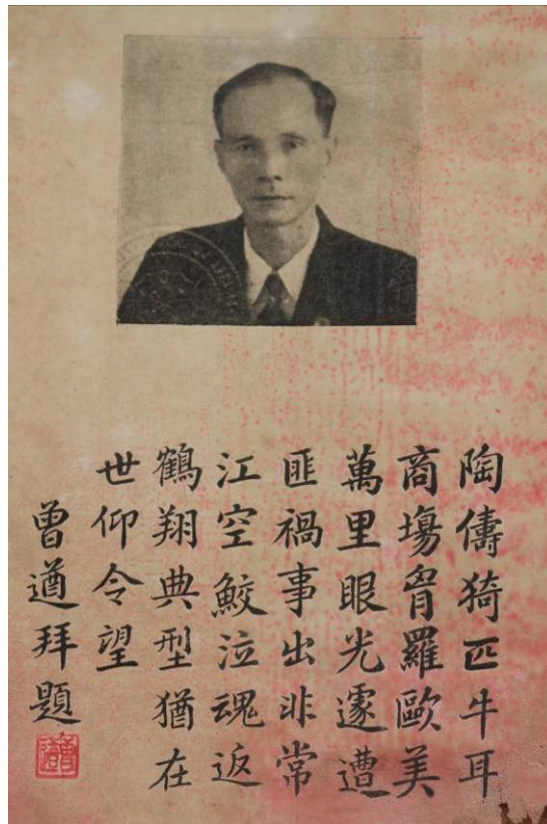 陶儔猗匹牛耳
商塲胷羅歐美
萬里眼光遽遭
匪禍事出非常
江空鮫泣魂返
鶴翔典型猶在
世仰令望
曾遒拜題